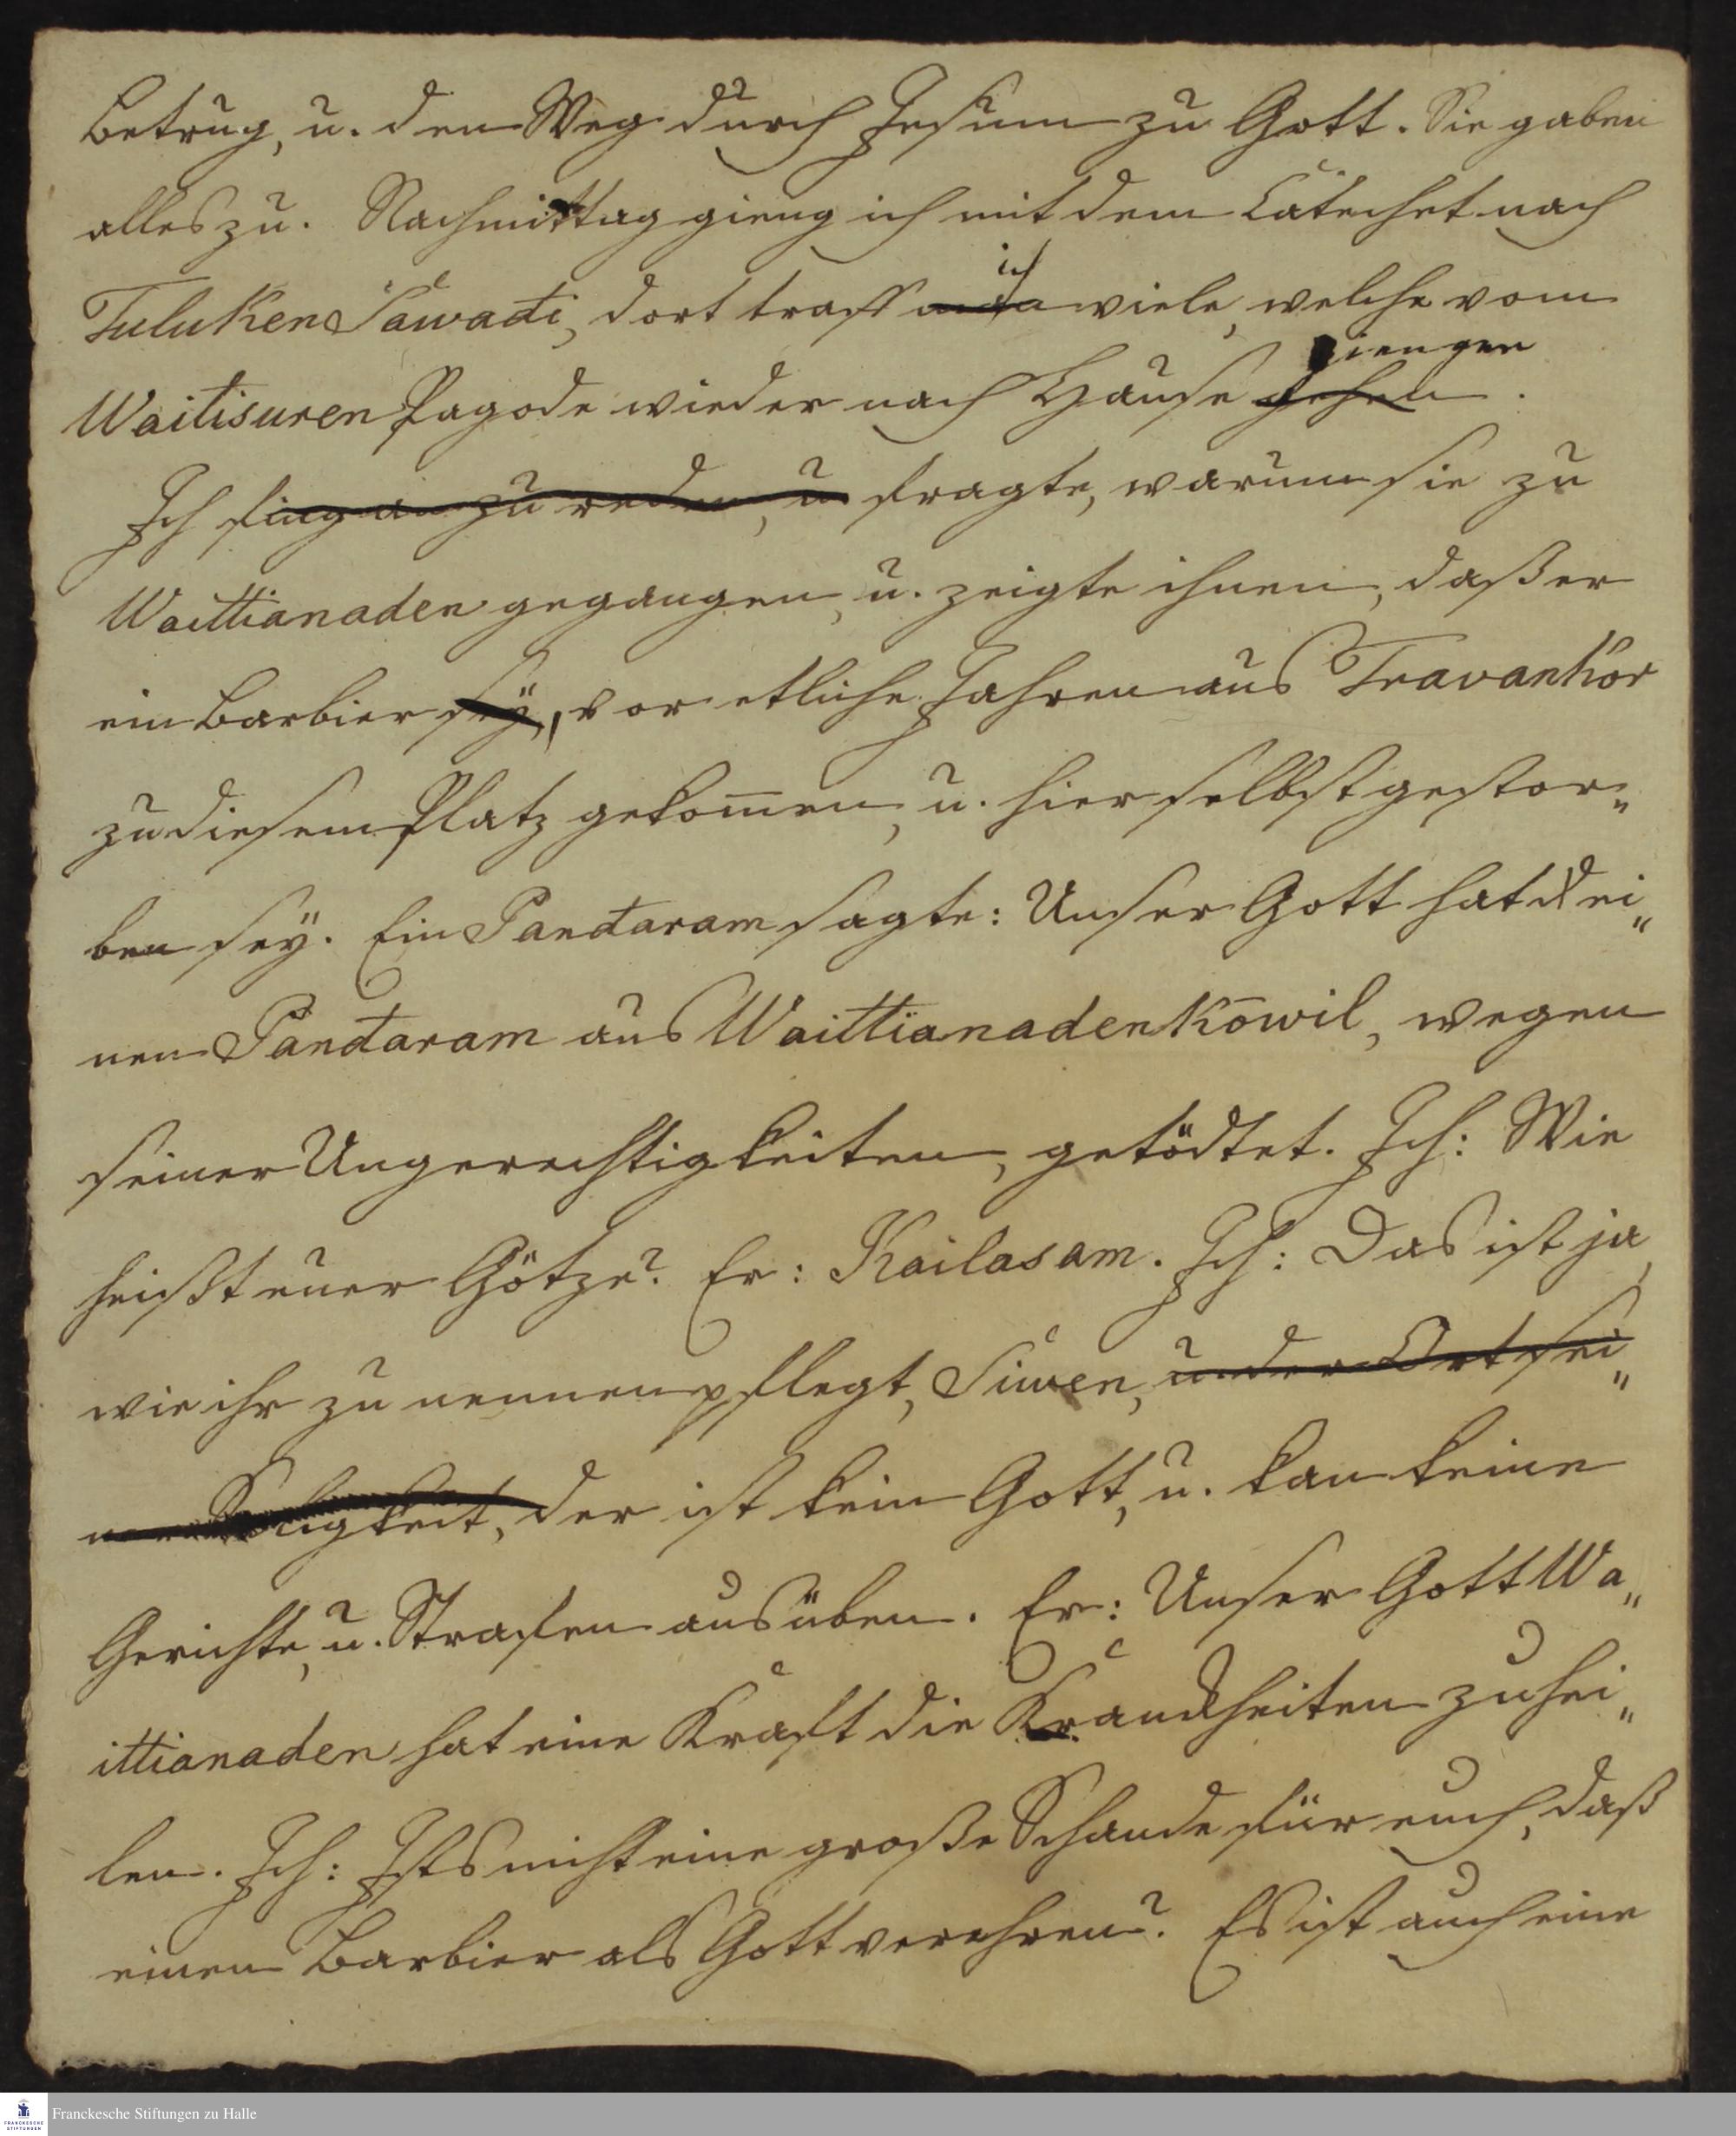 Betrug, u. den Weg durch Jesum zu Gott. Sie gaben
alles zu. Nachmittag gieng ich mit dem Catechet nach
Tuluken Sawadi, dort traff ich viele, welche vom
Waitisuren Pagode wieder nach Hause giengen gehen.
Ich fing an zu reden, u fragte, warum sie zu
Waittianaden gegangen, u. zeigte ihnen, daß er
ein Barbier sey, vor etliche Jahren aus Travankör
zu diesem Platz gekom̄en, u. hier selbst gestor„
ben sey. Ein Pandaram sagte: Unser Gott hat ei„
nen Pandaram aus Waittianadenkōwil, wegen
seiner Ungerechtigkeiten, getödtet. Ich: Wie
heißt euer Götze? Er: Kailasam. Ich: Das ist ja,
wie ihr zu nennen pflegt, Siwen, u. der Ort sei„
ner Seligkeit, der ist kein Gott, u. kan keine
Gerichte, u. Strafen ausüben. Er: Unser Gott Wa„
ittianaden hat eine Kraft die Kranckheiten zu hei„
len. Ich: Ists nicht eine große Schande für euch, daß
einen Barbier als Gott verehren? Es ist auch eine
Franckesche Stiftungen zu Halle